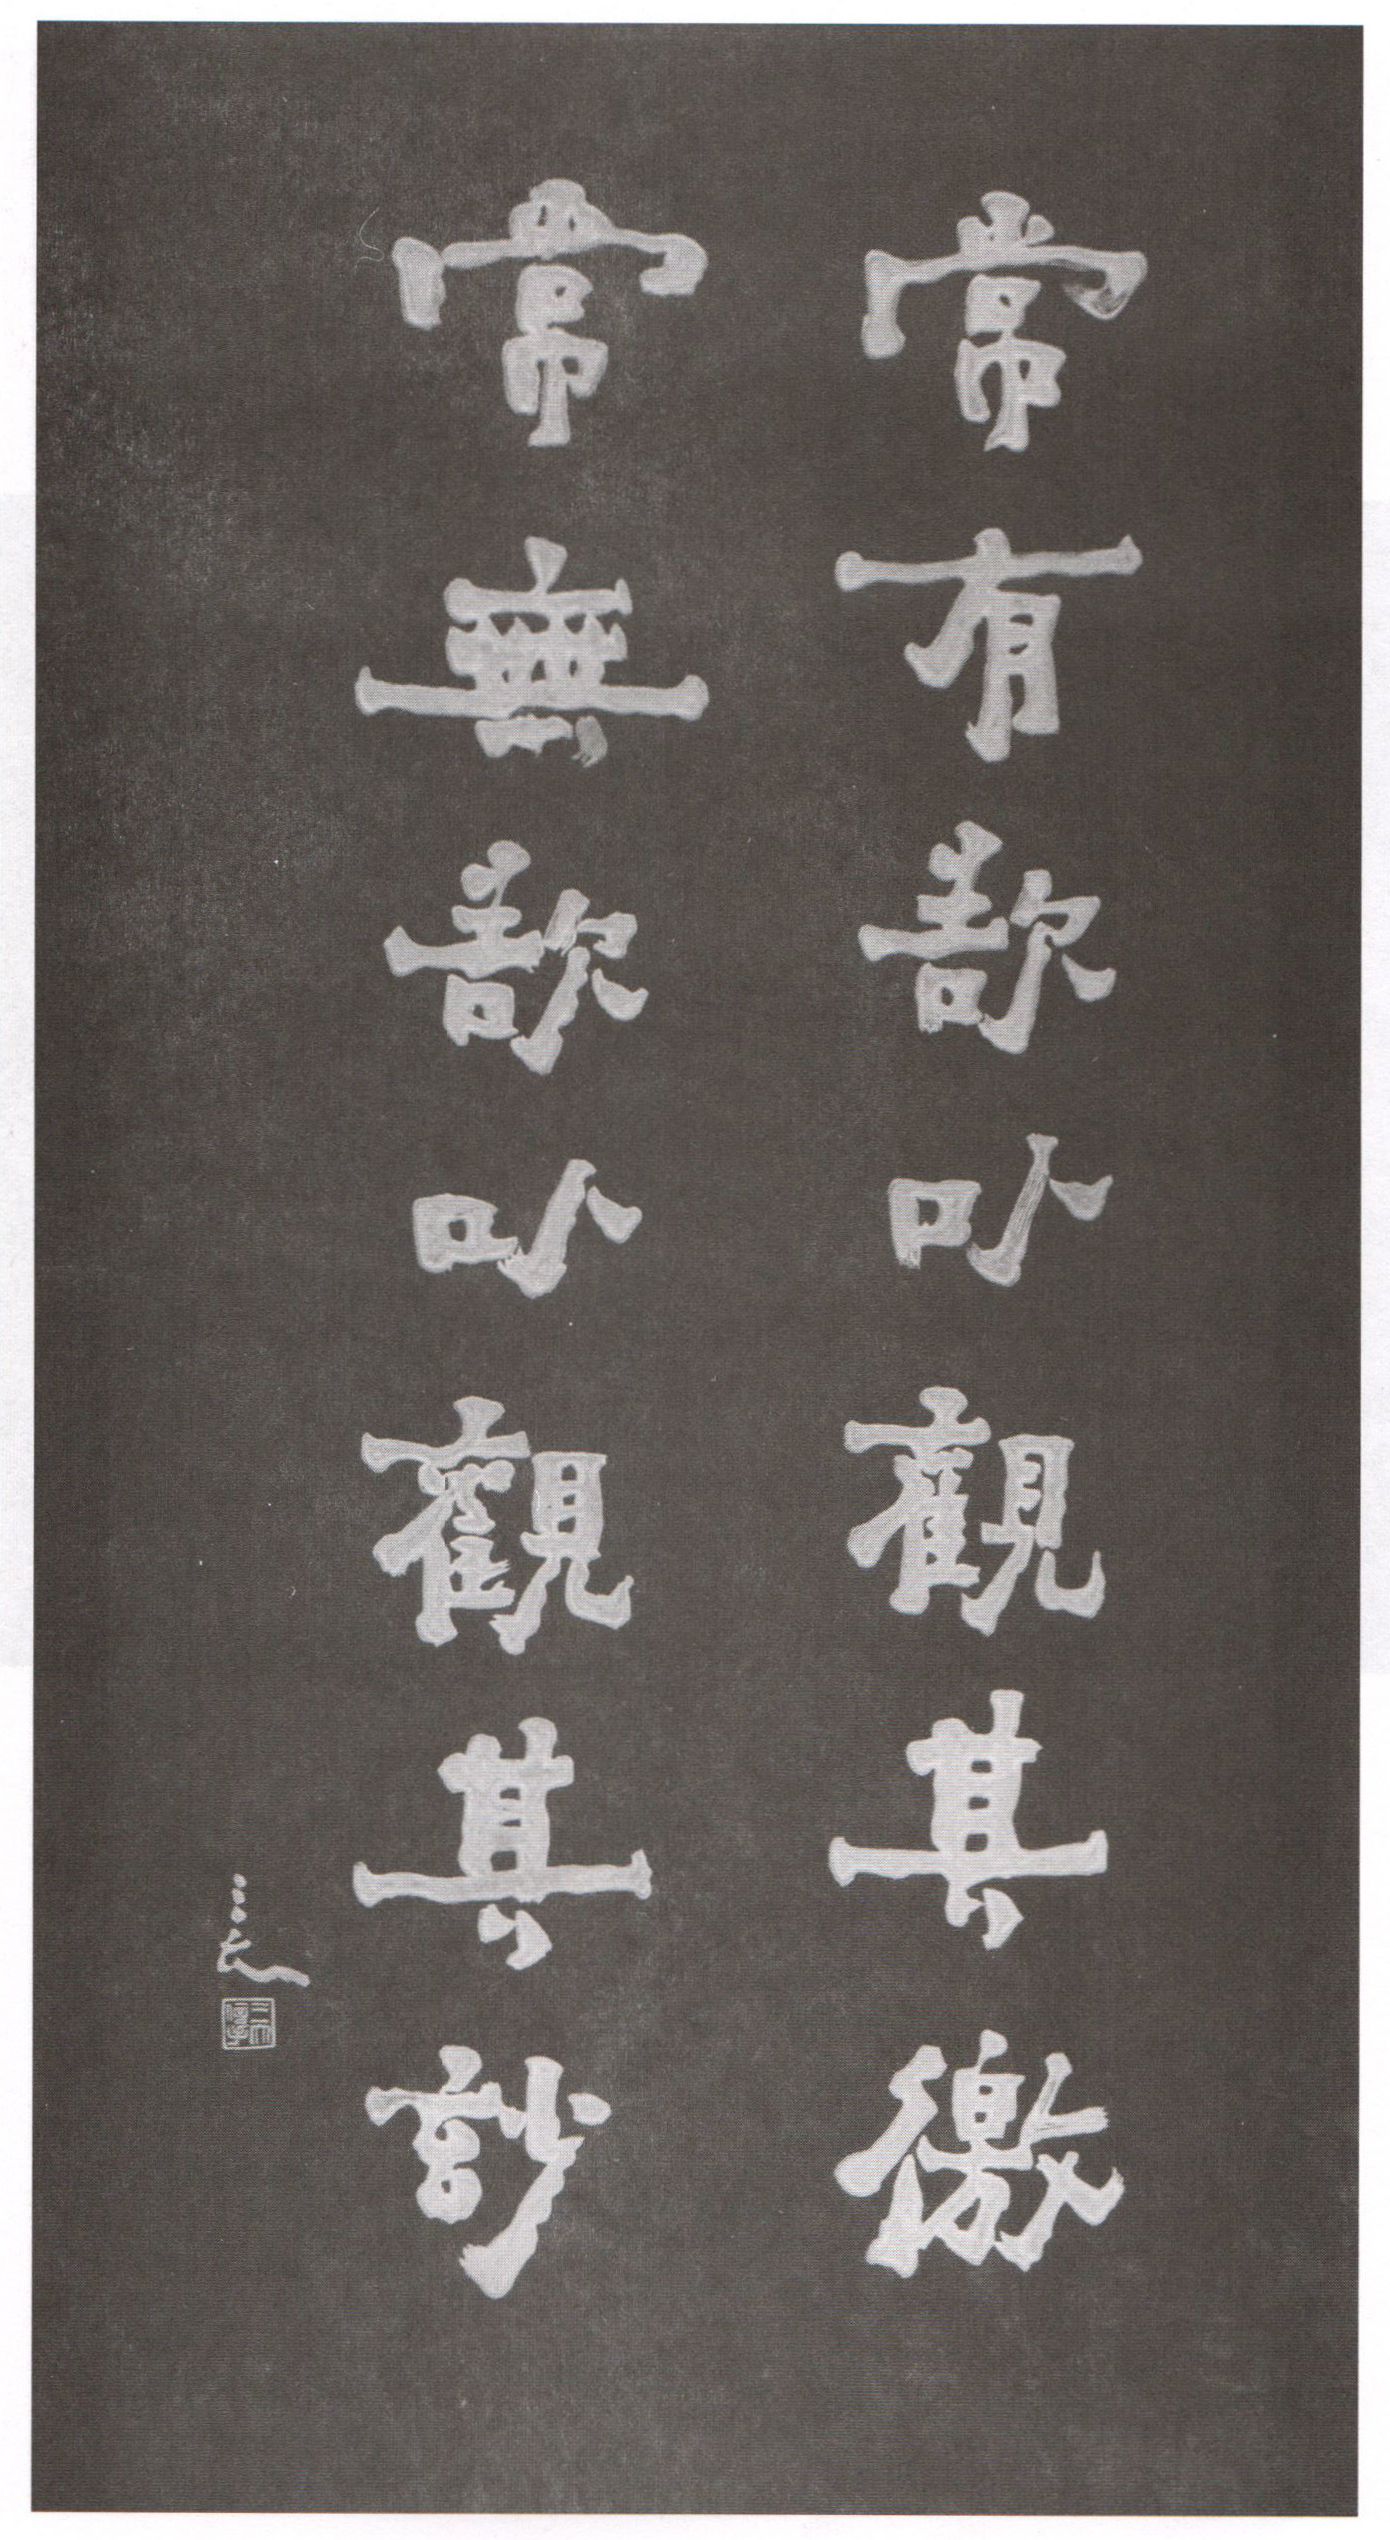 常有欲以觀其徼
常無欲以觀其玅